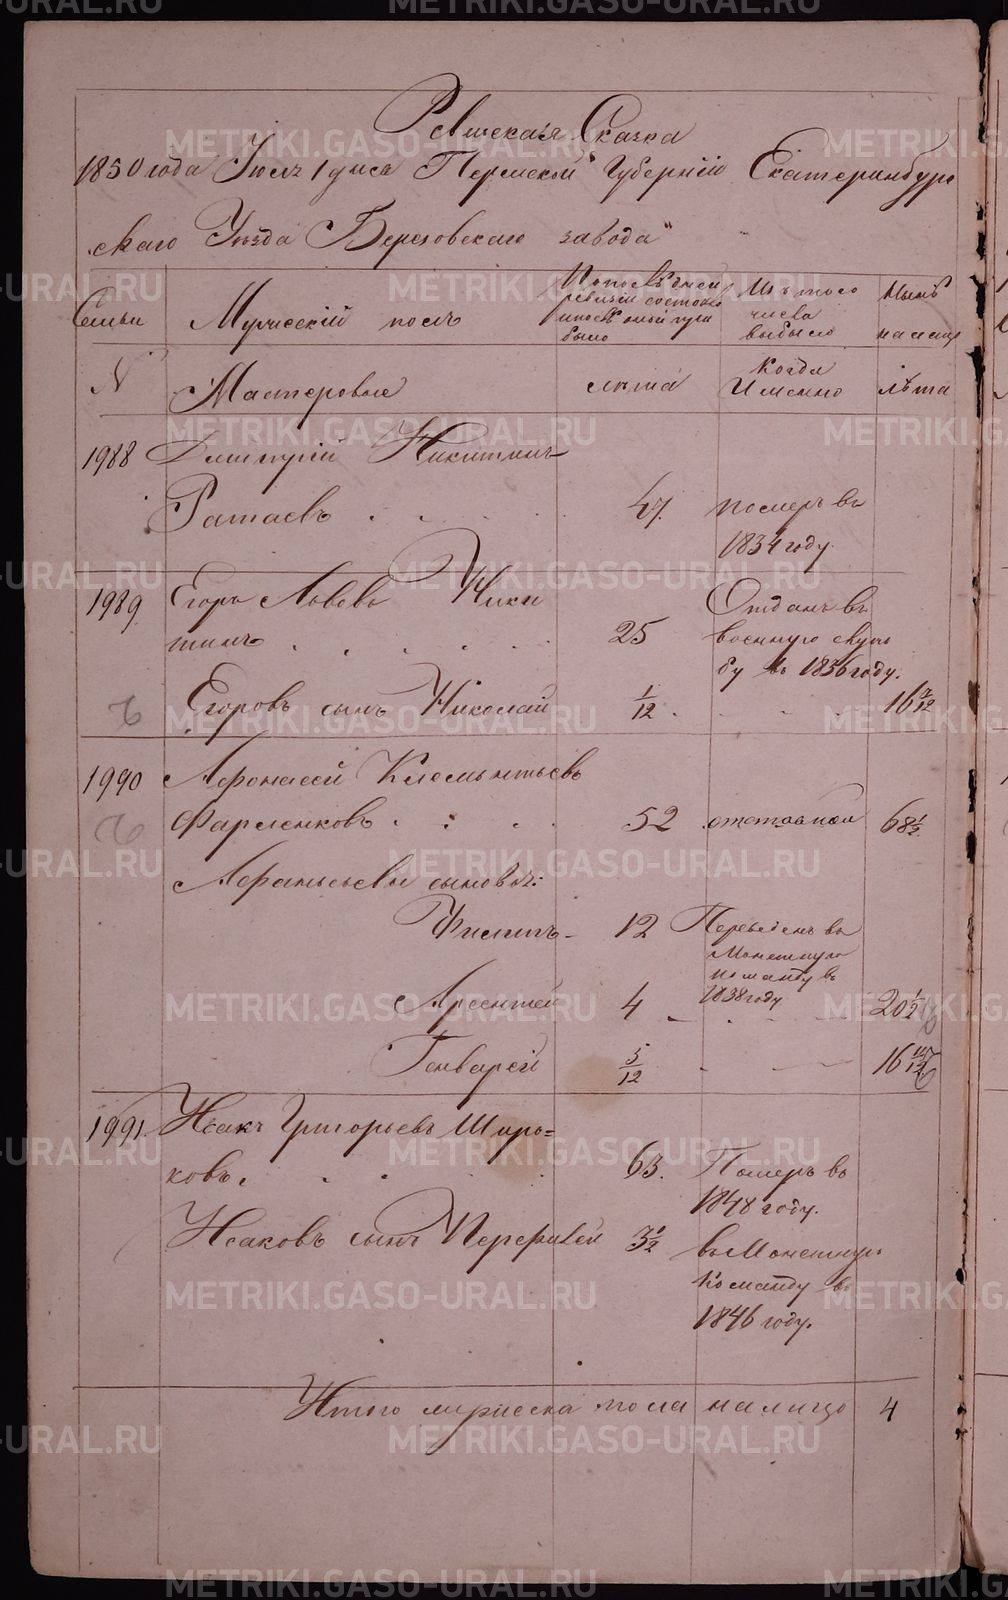 Ревизская Сказка
1850 года Июля 1 дня Пермской Губерніи Екатеринбург
скаго Уезда Березовскаго завода
Семьи
Мужескій полъ
По последней
ревизіи состояло
было
Изъ того
числа
выбыло
Ныне
на лицо
№
Мастеровые
лета
Когда
Именно
лета
1988 Дмитрій Никитинъ
Ратаевъ 47 померъ въ
1834 году.
1989 Егоръ Львовъ Ники
тинъ 25
Отданъ въ
военную служ
бу въ 1836 году.
Егоровъ сынъ Николай 1/12 16 7/12
1990
Фарленковъ 52 отставной 68 1/2
сыновья:
Филипъ 12 Переведенъ въ
Монетную
команду въ
1838 году
Арсентей 4 20 1/2
Генварей 5/12 16 11/12
1991 Исакъ Григорьевъ Широ=
ковъ 63. Померъ въ
1848 году.
Исаковъ сынъ Перфилей 3 1/2 въ Монетную
Команду въ
1846 году.
Итого мужеска пола на лицо 4
METRIKI.GASO-URAL.RU